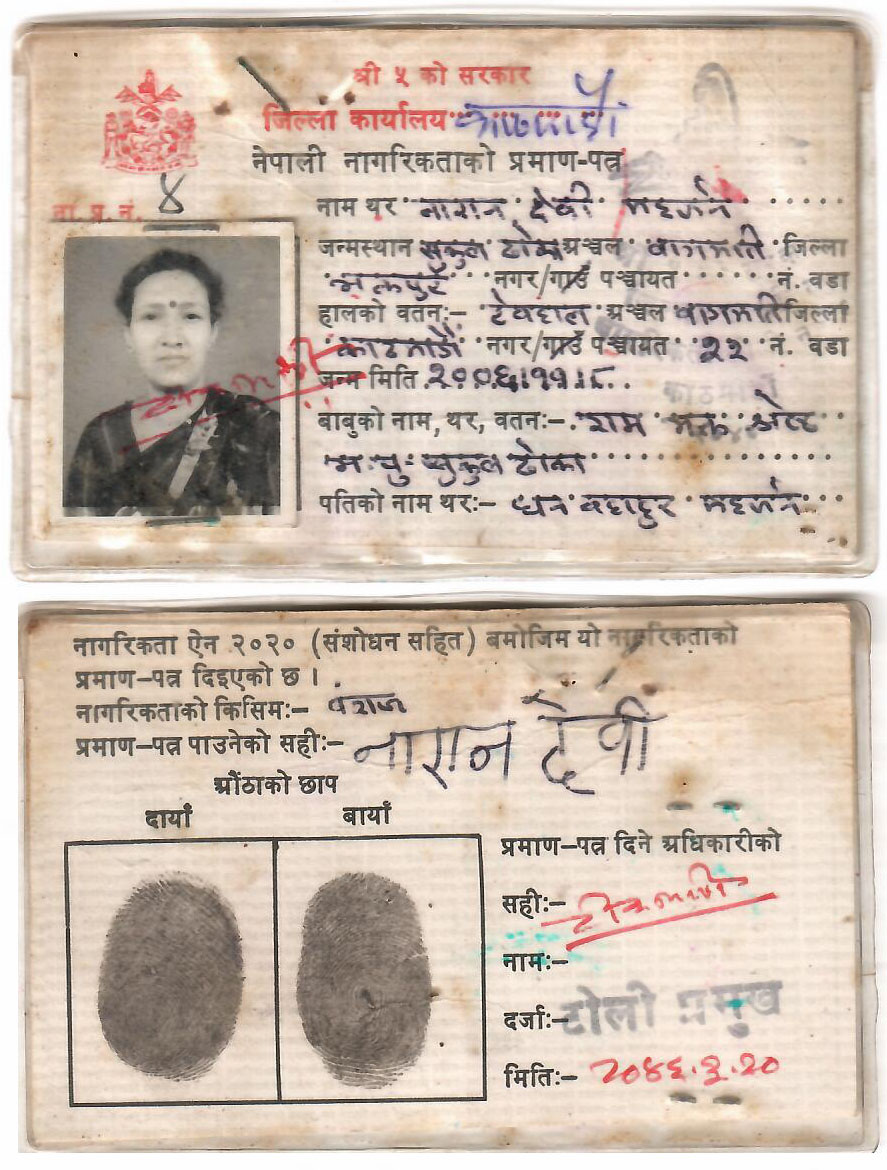 श्री ५ को सरकार
जिल्ला कार्यालय काठमाडौं
नेपाली नागरिकताको प्रमाण-पत्र
ना. प्र. नं. ४
नाम थर नारान देवी महर्जन
जन्मस्थान सुकुल ढोका अञ्चल बागमति जिल्ला
भक्तपुर नगर/गाउँ पञ्चायत नं. वडा
हालको वतन:- टेबहाल अञ्चल बागमति जिल्ला
काठमाडौं नगर/गाउँ पञ्चायत २२ नं. वडा
जन्म मिति २००६।११।८
बाबुको नाम, थर, वतन:- राम भक्त श्रेष्ठ
भ.पु. सुकुल ढोका
पतिको नाम थर:- धन बहादुर महर्जन
नागरिकता ऐन २०२० (संशोधन सहित) बमोजिम यो नागरिकताको
प्रमाण-पत्र दिइएको छ ।
नागरिकताको किसिम:- वंशज
प्रमाण-पत्र पाउनेको सही:- नारान देवी
औंठाको छाप
दायाँ बायाँ
प्रमाण-पत्र दिने अधिकारीको
सही:-
नाम:-
दर्जा:- टोली प्रमुख
मिति:- २०४६.३.२०